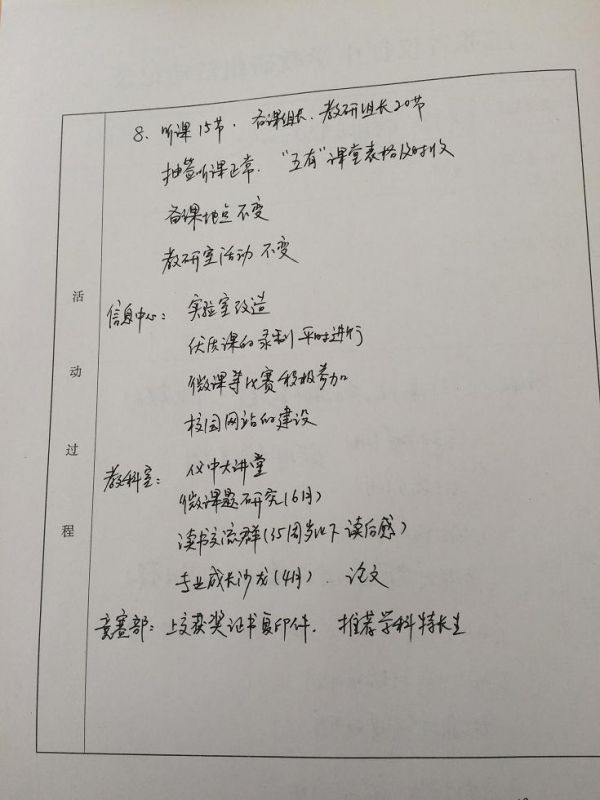 8、听课15节. 备课组长、教研组长20节
抽签听课正常. "五有"课堂表格及时收
备课地点不变
教研室活动不变
活动过程
信息中心: 实验室改造
优质课的录制平时进行
微课等比赛积极参加
校园网站的建设
教科室: 仪中大讲堂
微课题研究(6月)
读书交流群(35周岁以下读后感)
专业成长沙龙(4月). 论文
竞赛部: 上交获奖证书复印件. 推荐学科特长生